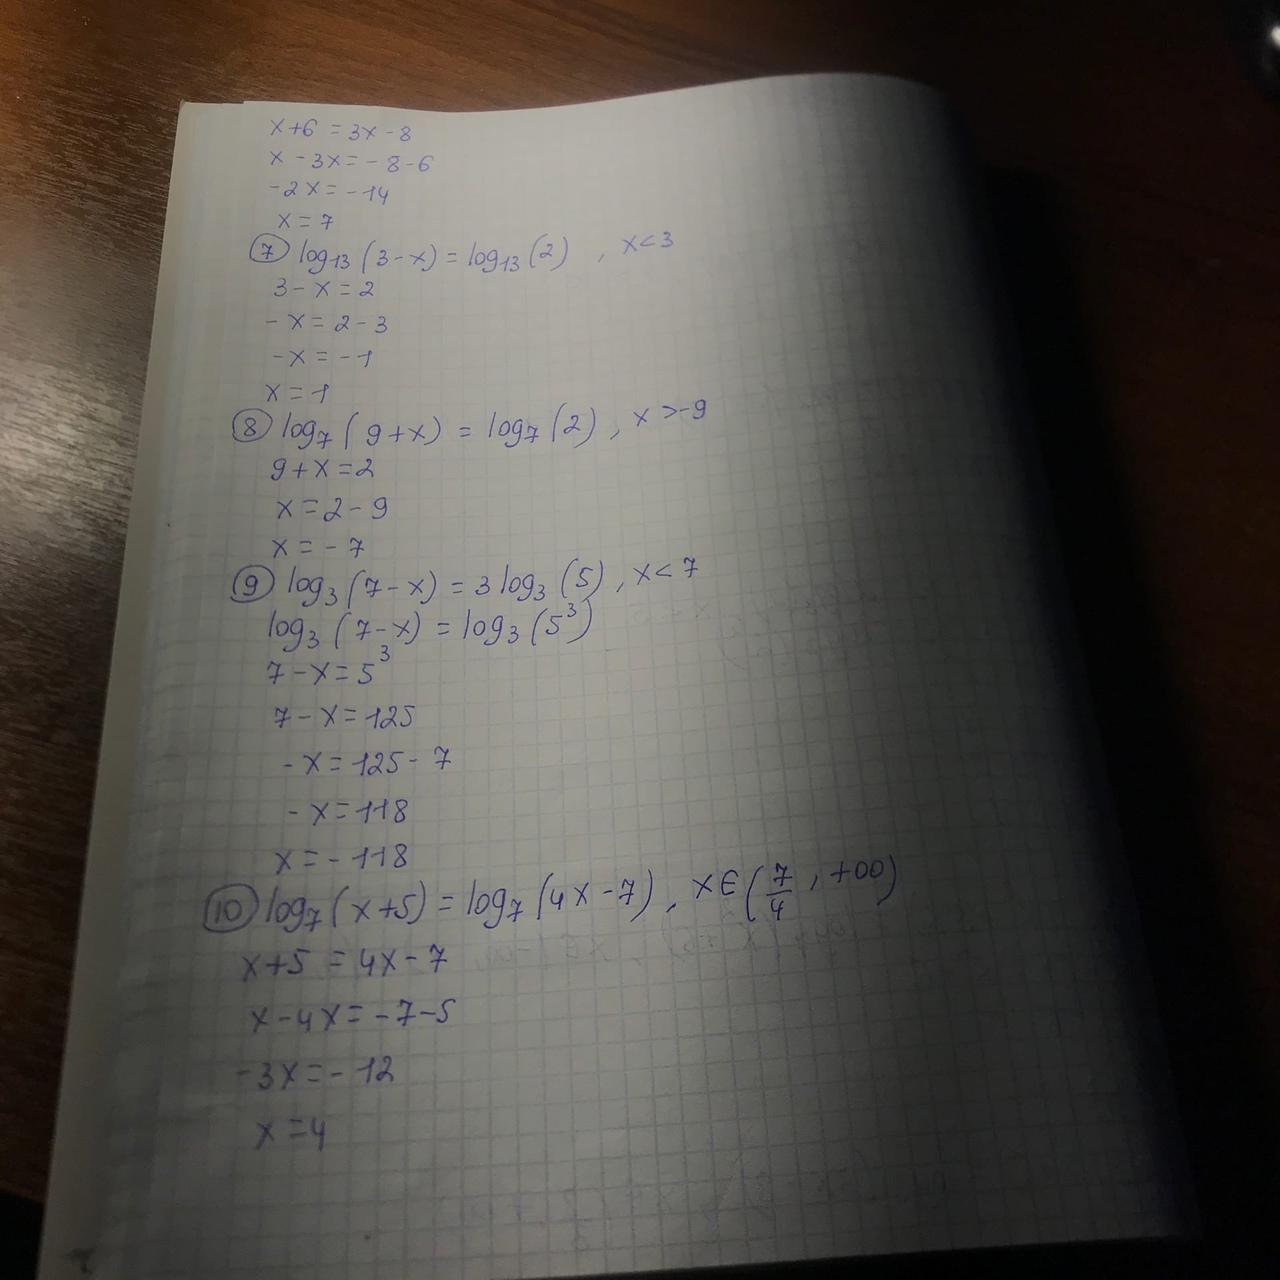 x+6 = 3x - 8
x - 3x = - 8 - 6
-2x = -14
x = 7
⑦ log₁₃ (3-x) = log₁₃ (2) , x<3
3 - x = 2
- x = 2 - 3
- x = - 1
x = 1
⑧ log₇ (9+x) = log₇ (2) , x > -9
9 + x = 2
x = 2 - 9
x = - 7
⑨ log₃ (7-x) = 3 log₃ (5) , x < 7
log₃ (7-x) = log₃ (5³)
7 - x = 5³
7 - x = 125
- x = 125 - 7
- x = 118
x = - 118
⑩ log₇ (x+5) = log₇ (4x - 7) , x ∈ (7/4 , +∞)
x+5 = 4x - 7
x - 4x = - 7 - 5
- 3x = - 12
x = 4